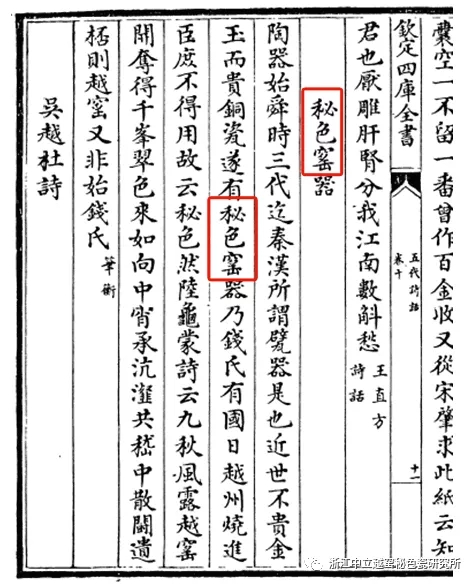 囊空一不留一番曾作百金收又從宋肇求此紙云知
欽定四庫全書
五代詩話
卷十
十一
君也厭雕肝腎分我江南數斛愁
王直方
詩話
秘色窰器
陶器始舜時三代迄秦漢所謂甓器是也近世不貴金
玉而貴銅瓷遂有秘色窰器乃錢氏有國日越州燒進
臣庶不得用故云秘色然陸龜蒙詩云九秋風露越窰
開奪得千峯翠色來如向中宵承沆瀣共嵇中散鬬遺
桮則越窰又非始錢氏
筆衡
吳越杜詩
浙江中立越窑秘色瓷研究所